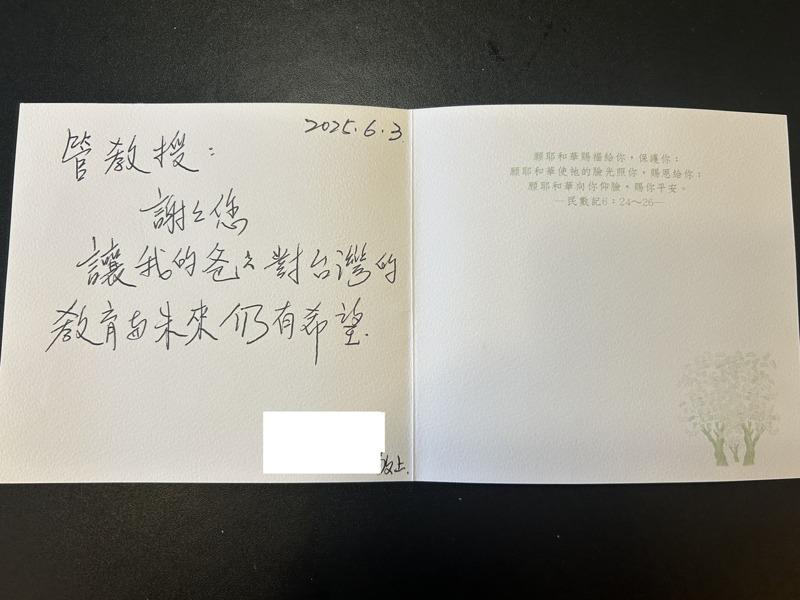 2025.6.3.
管教授：
謝々您
讓我的爸々對台灣的
教育與未來仍有希望.
敬上.
願耶和華賜福給你，保護你；
願耶和華使祂的臉光照你，賜恩給你；
願耶和華向你仰臉，賜你平安。
—民數記6：24～26—